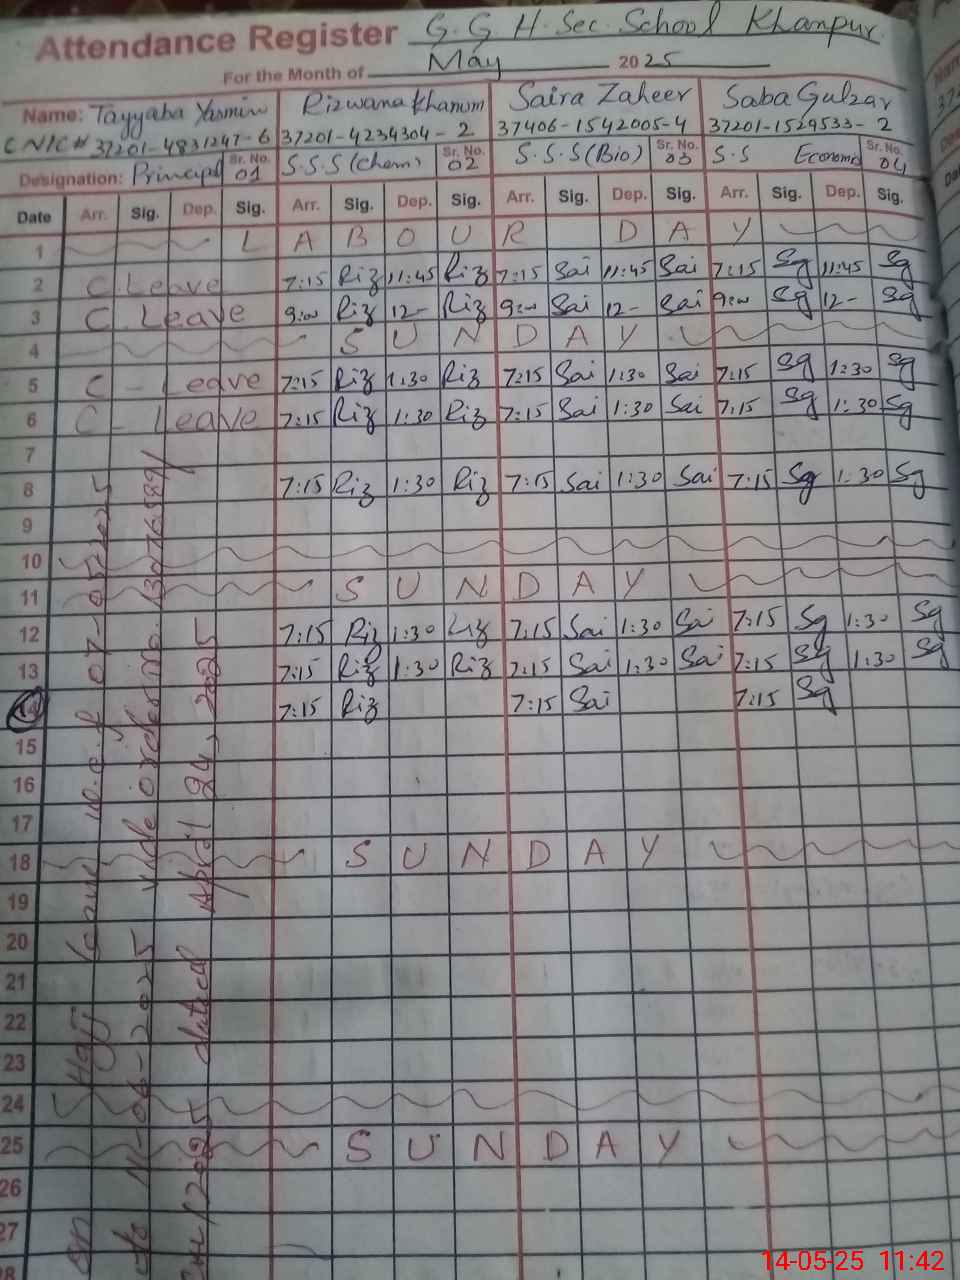 Attendance Register G.G.H.Sec.School Khanpur.
For the Month of May 2025
Name: Tayyaba Yasmin Rizwana Khanum Saira Zaheer Saba Gulzar
CNIC# 37201-4831247-6 37201-4234304-2 37406-1542005-4 37201-1529533-2
Designation: Principal Sr. No. 01 S.S.S (Chem) Sr. No. 02 S.S.S (Bio) Sr. No. 03 S.S Economo Sr. No. 04
Date Arr. Sig. Dep. Sig. Arr. Sig. Dep. Sig. Arr. Sig. Dep. Sig. Arr. Sig. Dep. Sig.
1 LABOUR DAY
2 C Leave 7:15 Riz 11:45 Riz 7:15 Sai 11:45 Sai 7:15 Sg 11:45 Sg
3 C Leave 9:00 Riz 12- Riz 9:00 Sai 12- Sai 9:00 Sg 12- Sg
4 SUNDAY
5 C - Leave 7:15 Riz 1:30 Riz 7:15 Sai 1:30 Sai 7:15 Sg 1:30 Sg
6 C - Leave 7:15 Riz 1:30 Riz 7:15 Sai 1:30 Sai 7:15 Sg 1:30 Sg
7
8 7:15 Riz 1:30 Riz 7:15 Sai 1:30 Sai 7:15 Sg 1:30 Sg
9
10
11 SUNDAY
12 7:15 Riz 1:30 Riz 7:15 Sai 1:30 Sai 7:15 Sg 1:30 Sg
13 7:15 Riz 1:30 Riz 7:15 Sai 1:30 Sai 7:15 Sg 1:30 Sg
14 7:15 Riz 7:15 Sai 7:15 Sg
15
16
17
18 SUNDAY
19
20
21
22
23
24
25 SUNDAY
26
27
28
on Hajj leave w.e.f 07-05-2025
to 11-06-2025 vide order no.
2025 dated April 24, 2025
14-05-25 11:42